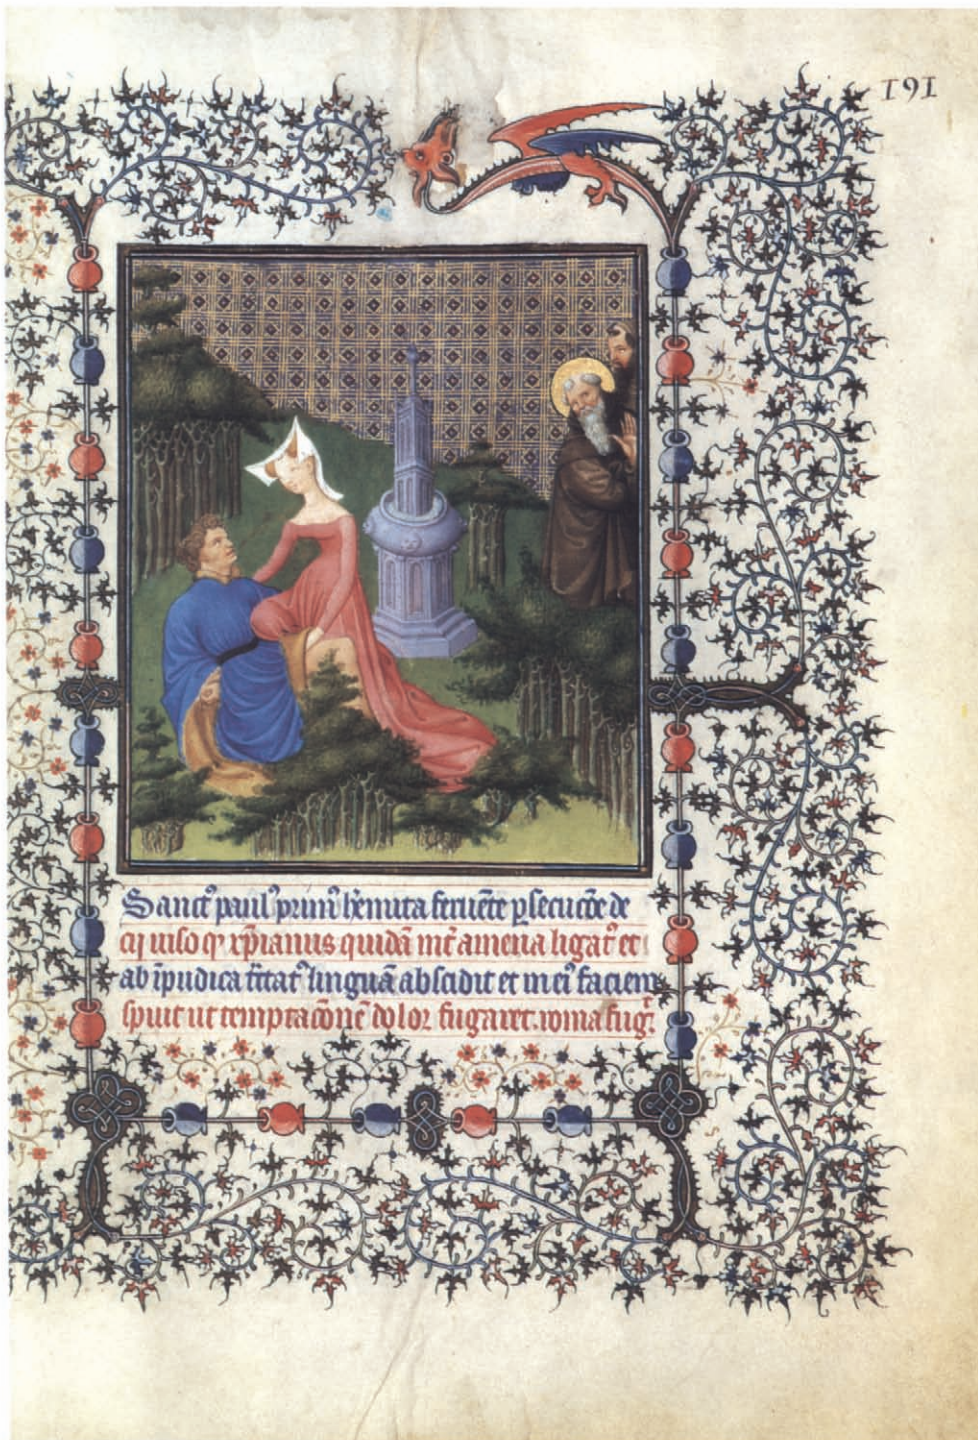 191
Sanct⁹ paul⁹ prim⁹ h̄emita feruēte ꝑsecucōe de
cij uiso qꝫ xp̄ianus quidā int̄ amena ligat⁹ et
ab īpudica t̄ctat⁹ linguā abscidit et in ei⁹ faciem
spuit ut temptacōnē dolor fugaret. roma fug